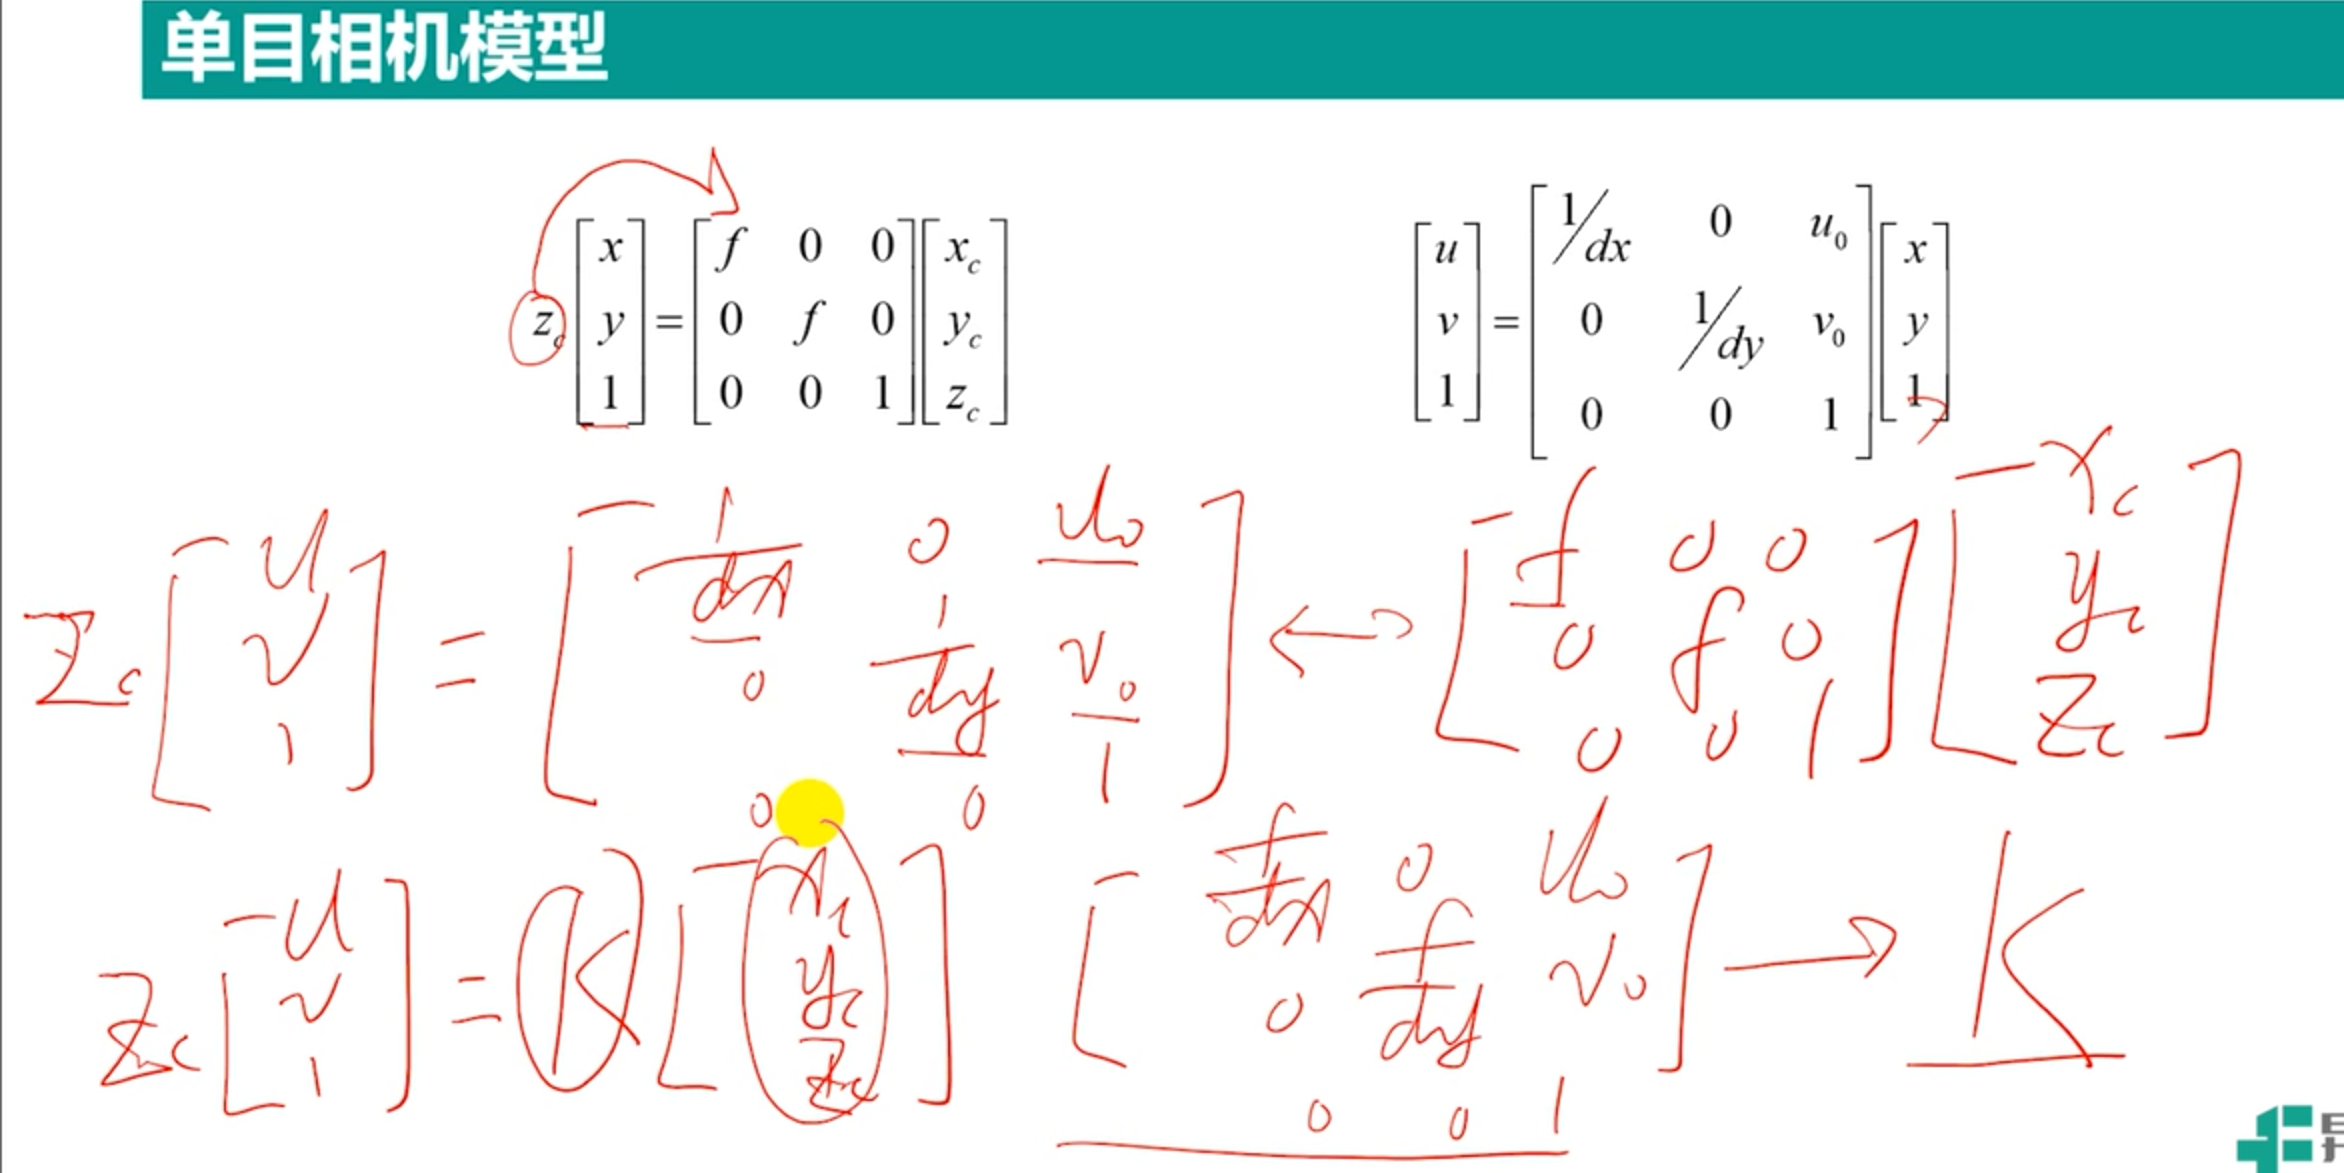 单目相机模型
z_c [x y 1]^T = [f 0 0; 0 f 0; 0 0 1] [x_c y_c z_c]^T
[u v 1]^T = [1/dx 0 u_0; 0 1/dy v_0; 0 0 1] [x y 1]^T
Z_c [u v 1]^T = [1/dx 0 u_0; 0 1/dy v_0; 0 0 1] ↔ [f 0 0; 0 f 0; 0 0 1] [x_c y_c z_c]^T
Z_c [u v 1]^T = K [x_c y_c z_c]^T
[f/dx 0 u_0; 0 f/dy v_0; 0 0 1] → K